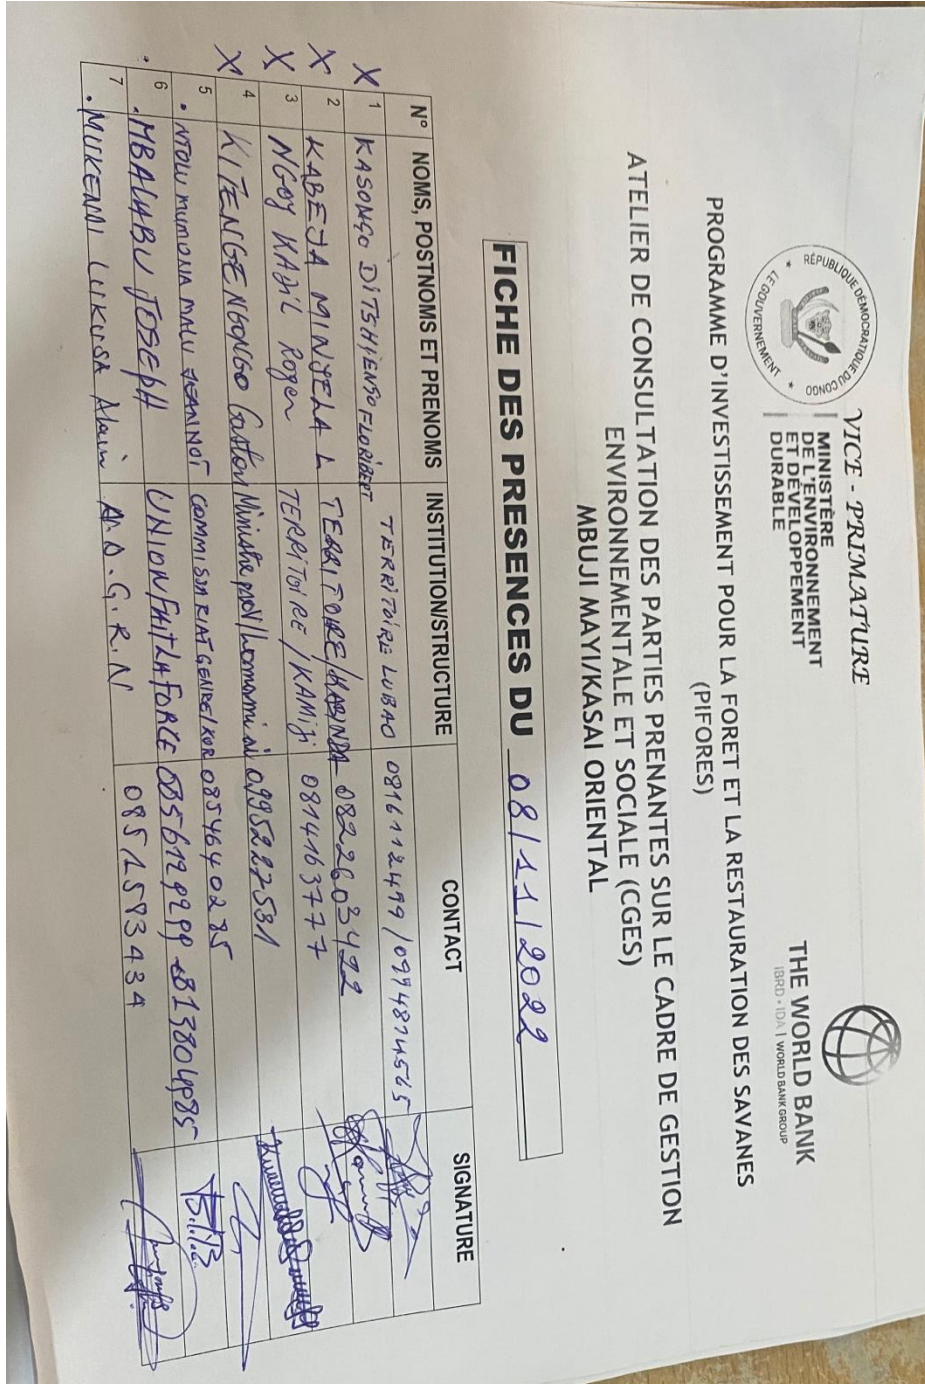 RÉPUBLIQUE DÉMOCRATIQUE DU CONGO
LE GOUVERNEMENT
VICE - PRIMATURE
MINISTÈRE
DE L'ENVIRONNEMENT
ET DÉVELOPPEMENT
DURABLE
THE WORLD BANK
IBRD • IDA | WORLD BANK GROUP
PROGRAMME D'INVESTISSEMENT POUR LA FORET ET LA RESTAURATION DES SAVANES
(PIFORES)
ATELIER DE CONSULTATION DES PARTIES PRENANTES SUR LE CADRE DE GESTION
ENVIRONNEMENTALE ET SOCIALE (CGES)
MBUJI MAYI/KASAI ORIENTAL
FICHE DES PRESENCES DU 08/11/2022
N° NOMS, POSTNOMS ET PRENOMS INSTITUTION/STRUCTURE CONTACT SIGNATURE
X 1 KASONGO DITSHIENGO FLORIBERT TERRITOIRE LUBAO 0816112499 / 0994874565
X 2 KABEJA MINYELA L TERRITOIRE/KABINDA 0822603422
X 3 NGOY KABIL Roger TERRITOIRE/KAMIJI 0814163777
X 4 KITENGE NGONGO Gaston Ministre prov/Lomami 0995227531
5 NTOLU MUMONA MALU JEANNOT COMMISSARIAT GENRE/KOR 0854640285
6 MBALABU JOSEPH UNION FAIT LA FORCE 0856129999
7 MUKENDI LUKUSA Alain A.D.G.R.N 0851583434